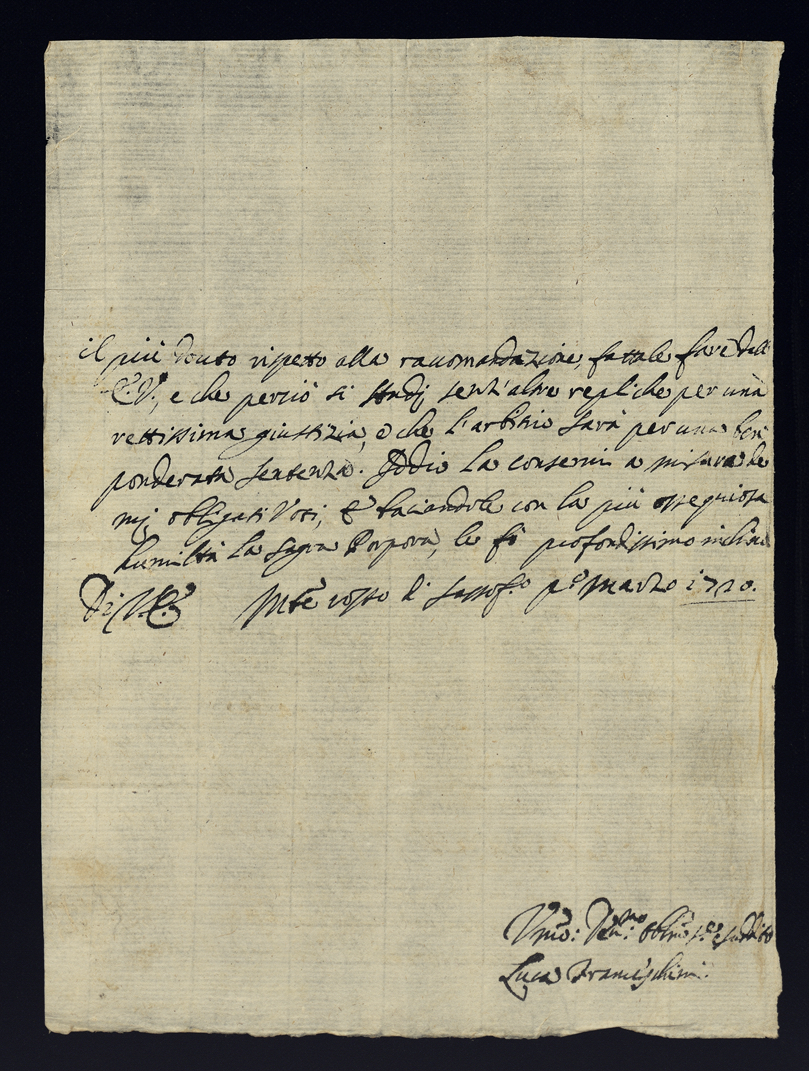 il più douto rispetto alla racomandazione, fattale fare dall'
E. V., e che perciò si studij senz'altre repliche per una
rettissima giustizia, e che l'arbitrio sarà per una ben
ponderata sentenza. Iddio la conservi a misura de
miei obligati Voti, e baciandole con la più ossequiosa
humiltà la Sagra Porpora, le fò profondissimo inchino
Di V. E. Mte rosso di Sassof.o p.o Marzo 1720.
Vmo: Deu.mo Oblmo se.re e suddito
Luca Franceschini